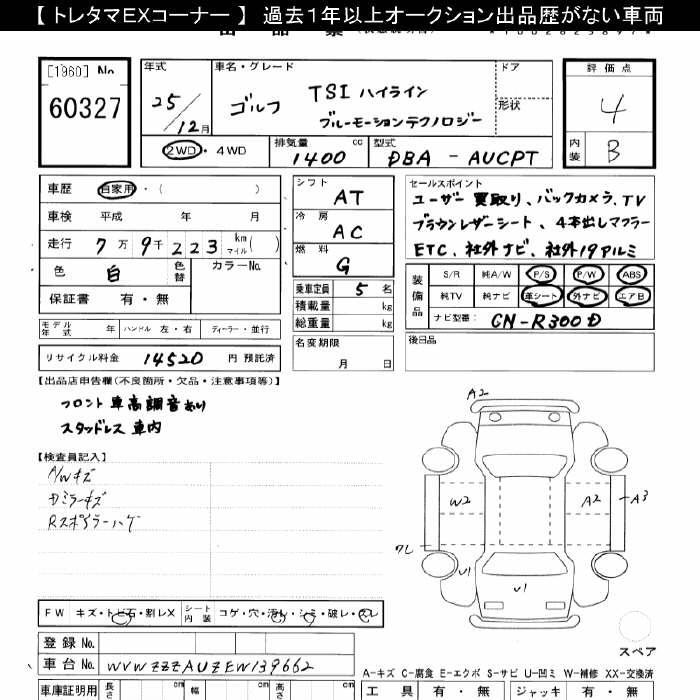 【 トレタマEXコーナー 】 過去1年以上オークション出品歴がない車両
[1960] No
60327
年式
25/12月
車名・グレード
ゴルフ TSI ハイライン
ブルーモーションテクノロジー
ドア
形状
評価点
4
内装
B
2WD・4WD
排気量
1400 cc
型式
DBA - AUCPT
車歴 自家用・( )
車検 平成 年 月
走行 7万9千223 km マイル ( )
色 白 色替 カラーNo.
保証書 有・無
シフト
AT
冷房
AC
燃料
G
乗車定員 5 名
積載量 kg
総重量 kg
セールスポイント
ユーザー買取り、バックカメラ、TV
ブラウンレザーシート、4本出しマフラー
ETC、社外ナビ、社外19アルミ
装備品
S/R 純A/W P/S P/W ABS
純TV 純ナビ 革シート 外ナビ エアB
ナビ型番 CN-R300D
モデル年式 年 ハンドル 左・右 ディーラー・並行
リサイクル料金 14520 円 預託済
名変期限
月 日
後日品
【出品店申告欄(不良箇所・欠品・注意事項等)】
フロント車高調音あり
スタッドレス車内
【検査員記入】
A/Wキズ
Dミラーキズ
Rスポイラーハゲ
A2
W2
A2
A3
ワレ
U1
U1
スペア
FW キズ・トビ石・割レX シート内装 コゲ・穴・汚レ・シミ・破レ・スレ
登録 No.
車台 No. WVWZZZAUZEW139662
A−キズ C−腐食 E−エクボ S−サビ U−凹ミ W−補修 XX−交換済
車庫証明用 長さ cm 幅 cm 高さ cm
工具 有・無 ジャッキ 有・無